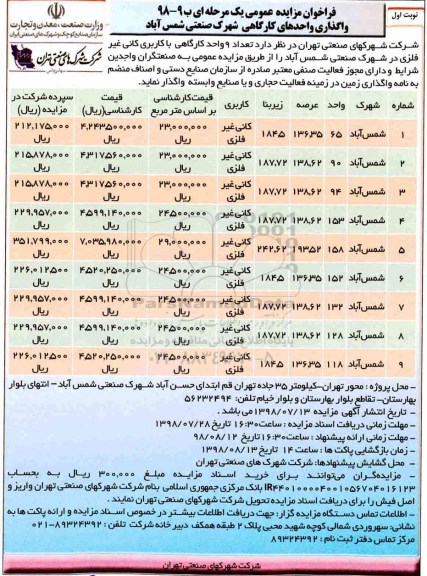 نوبت اول
فراخوان مزایده عمومی یک مرحله ای ب ۹-۹۸
واگذاری واحدهای کارگاهی شهرک صنعتی شمس آباد
وزارت صنعت، معدن و تجارت
سازمان صنایع کوچک و شهرکهای صنعتی ایران
شرکت شهرکهای صنعتی تهران
شرکت شهرکهای صنعتی تهران در نظر دارد تعداد ۹ واحد کارگاهی با کاربری کانی غیر
فلزی در شهرک صنعتی شمس آباد را از طریق مزایده عمومی به صنعتگران واجدین
شرایط و دارای مجوز فعالیت صنفی معتبر صادره از سازمان صنایع دستی و اصناف منضم
به نامه واگذاری زمین در زمینه فعالیت حجاری و یا صنایع وابسته واگذار نماید.
شماره شهرک واحد عرصه زیربنا کاربری قیمت کارشناسی بر اساس متر مربع قیمت کارشناسی(ریال) سپرده شرکت در مزایده (ریال)
۱ شمس‌آباد ۶۵ ۱۳۶,۳۵ ۱۸۴,۵ کانی غیر فلزی ۲۳,۰۰۰,۰۰۰ ۴,۲۴۳,۵۰۰,۰۰۰ ۲۱۲,۱۷۵,۰۰۰
۲ شمس‌آباد ۹۰ ۱۳۸,۶۲ ۱۸۷,۷۲ کانی غیر فلزی ۲۳,۰۰۰,۰۰۰ ۴,۳۱۷,۵۶۰,۰۰۰ ۲۱۵,۸۷۸,۰۰۰
۳ شمس‌آباد ۹۴ ۱۳۸,۶۲ ۱۸۷,۷۲ کانی غیر فلزی ۲۳,۰۰۰,۰۰۰ ۴,۳۱۷,۵۶۰,۰۰۰ ۲۱۵,۸۷۸,۰۰۰
۴ شمس‌آباد ۱۵۳ ۱۳۸,۶۲ ۱۸۷,۷۲ کانی غیر فلزی ۲۴,۵۰۰,۰۰۰ ۴,۵۹۹,۱۴۰,۰۰۰ ۲۲۹,۹۵۷,۰۰۰
۵ شمس‌آباد ۱۵۸ ۱۹۳,۵۲ ۲۴۲,۶۲ کانی غیر فلزی ۲۹,۰۰۰,۰۰۰ ۷,۰۳۵,۹۸۰,۰۰۰ ۳۵۱,۷۹۹,۰۰۰
۶ شمس‌آباد ۱۵۲ ۱۳۶,۳۵ ۱۸۴,۵ کانی غیر فلزی ۲۴,۵۰۰,۰۰۰ ۴,۵۲۰,۲۵۰,۰۰۰ ۲۲۶,۰۱۲,۵۰۰
۷ شمس‌آباد ۱۳۲ ۱۳۸,۶۲ ۱۸۷,۷۲ کانی غیر فلزی ۲۴,۵۰۰,۰۰۰ ۴,۵۹۹,۱۴۰,۰۰۰ ۲۲۹,۹۵۷,۰۰۰
۸ شمس‌آباد ۱۲۸ ۱۳۸,۶۲ ۱۸۷,۷۲ کانی غیر فلزی ۲۴,۵۰۰,۰۰۰ ۴,۵۹۹,۱۴۰,۰۰۰ ۲۲۹,۹۵۷,۰۰۰
۹ شمس‌آباد ۱۱۸ ۱۳۶,۳۵ ۱۸۴,۵ کانی غیر فلزی ۲۴,۵۰۰,۰۰۰ ۴,۵۲۰,۲۵۰,۰۰۰ ۲۲۶,۰۱۲,۵۰۰
- محل پروژه : محور تهران-کیلومتر ۳۵ جاده تهران قم ابتدای حسن آباد شهرک صنعتی شمس آباد - انتهای بلوار
بهارستان- تقاطع بلوار بهارستان و بلوار خیام تلفن: ۵۶۲۳۲۴۹۴
- تاریخ انتشار آگهی مزایده ۱۳۹۸/۰۷/۱۳ می باشد .
- مهلت زمانی دریافت اسناد مزایده : ساعت ۱۶:۳۰ تاریخ ۱۳۹۸/۰۷/۲۸
- مهلت زمانی ارائه پیشنهاد : ساعت ۱۶:۳۰ تاریخ ۹۸/۰۸/۱۲
- زمان بازگشایی پاکت ها : ساعت ۱۴ تاریخ ۱۳۹۸/۰۸/۱۳
- محل گشایش پیشنهادها: شرکت شهرک های صنعتی تهران
- مزایده‌گران می‌توانند برای خرید اسناد مزایده مبلغ ۳۰۰,۰۰۰ ریال به بحساب
بانک مرکزی جمهوری اسلامی بنام شرکت شهرکهای صنعتی تهران واریز و
اصل فیش را برای دریافت اسناد مزایده تحویل شرکت شهرکهای صنعتی تهران نمایند .
- اطلاعات تماس دستگاه مزایده گزار: جهت دریافت اطلاعات بیشتر در خصوص اسناد مزایده و ارائه پاکت ها به
نشانی: سهروردی شمالی کوچه شهید محبی پلاک ۲ طبقه همکف دبیرخانه شرکت تلفن : ۸۹۳۲۴۳۹۲-۰۲۱
مرکز تماس دفتر ثبت نام : ۸۹۳۲۴۳۹۲
شرکت شهرکهای صنعتی تهران